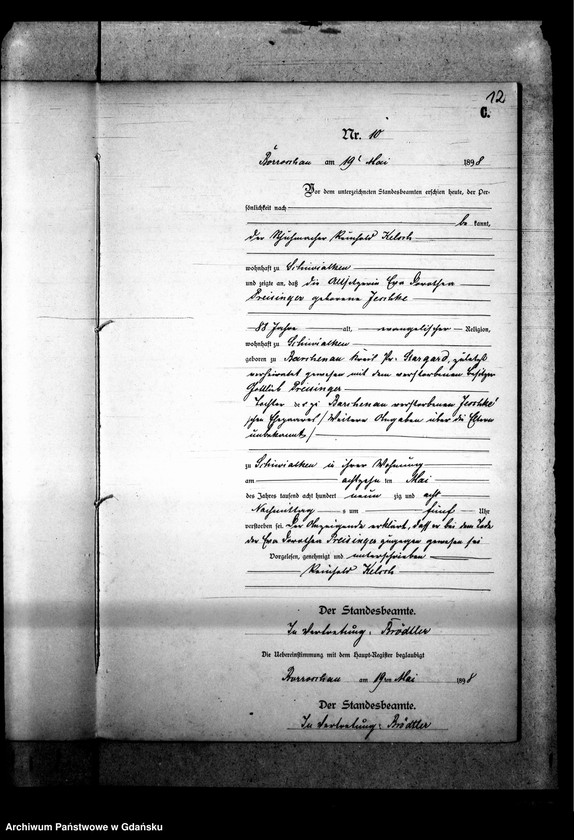 12
C.
Nr. 10
Borroschau am 19t Mai 1898
Vor dem unterzeichneten Standesbeamten erschien heute, der Per-
sönlichkeit nach
be kannt,
der Schuhmacher Reinhold Kelsch
wohnhaft zu Schiwialken
und zeigte an, daß die Altsitzerin Eva Dorothea
Preisinger geborene Jeschke
88 Jahre alt, evangelischer Religion,
wohnhaft zu Schiwialken
geboren zu Barchenau Kreis Pr. Stargard, zuletzt
verheiratet gewesen mit dem verstorbenen Besitzer
Gottlieb Preisinger
Tochter der zu Barchenau verstorbenen Jeschke'
schen Eheparres/ Weitere Angaben über die Eltern
unbekannt/
zu Schiwialken in ihrer Wohnung
am achtzehn ten Mai
des Jahres tausend acht hundert neun zig und acht
Nachmittag s um fünf Uhr
verstorben sei. Der Anzeigende erklärt, daß er bei dem Tode
der Eva Dorothea Preisinger zugegen gewesen sei
Vorgelesen, genehmigt und unterschrieben
Reinhold Kelsch
Der Standesbeamte.
In Vertretung: Brödtler
Die Uebereinstimmung mit dem Haupt-Register beglaubigt
Borroschau am 19ten Mai 1898
Der Standesbeamte.
In Vertretung: Brödtler
Archiwum Państwowe w Gdańsku